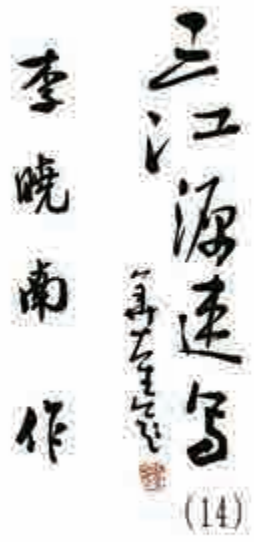 三江源速写
(14)
李晓南作